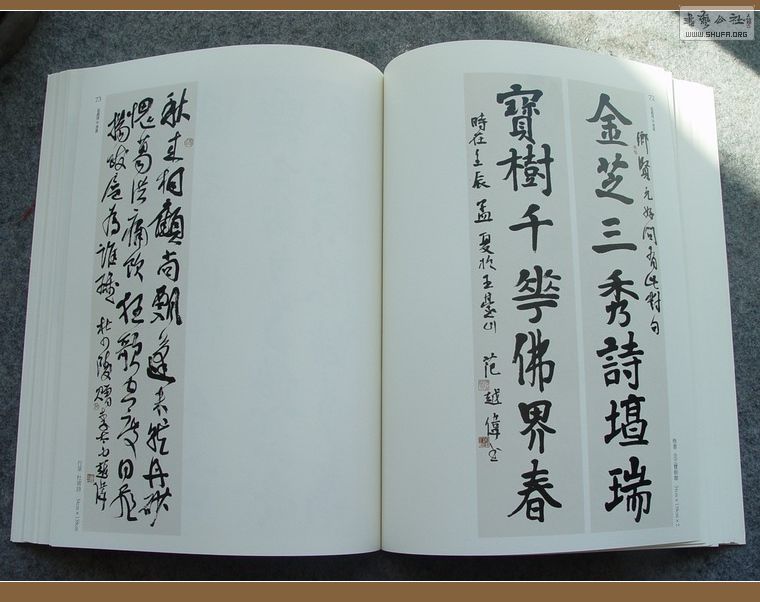 書藝公社
WWW.SHUFA.ORG
72
鄉賢元好問有此對句
金芝三秀詩壇瑞
寶樹千華佛界春
時在壬辰孟夏於玉山 范越偉書
73
秋來相顧尚飄蓬未就丹砂
愧葛洪痛飲狂歌空度日飛
揚跋扈為誰雄 杜少陵贈李太白 越偉
行草 杜甫詩 34cm×138cm